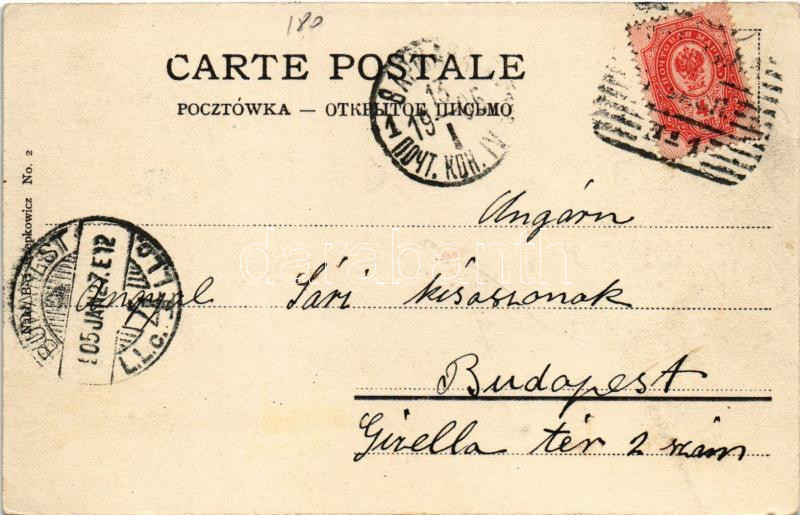 180
CARTE POSTALE
POCZTÓWKA — ОТКРЫТОЕ ПИСЬМО
1 ПОЧТ. КОН. IV
ПОЧТОВАЯ МАРКА
No. 2
Ungárn
Angyal Sári kisasszonak
BUDAPEST
905 JAN 27. E 12
Budapest
Gizella tér 2 szám
darabanth